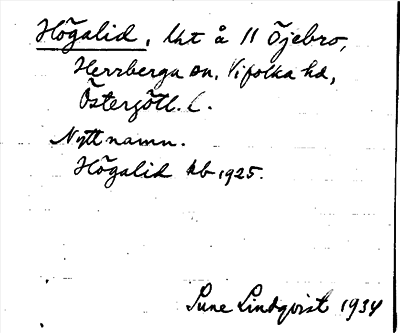 Högalid, lht å 11 Öjebro,
Herrberga sn, Vifolka hd,
Östergötl. l.
Nytt namn.
Högalid kb 1925.
Sune Lindqvist 1934